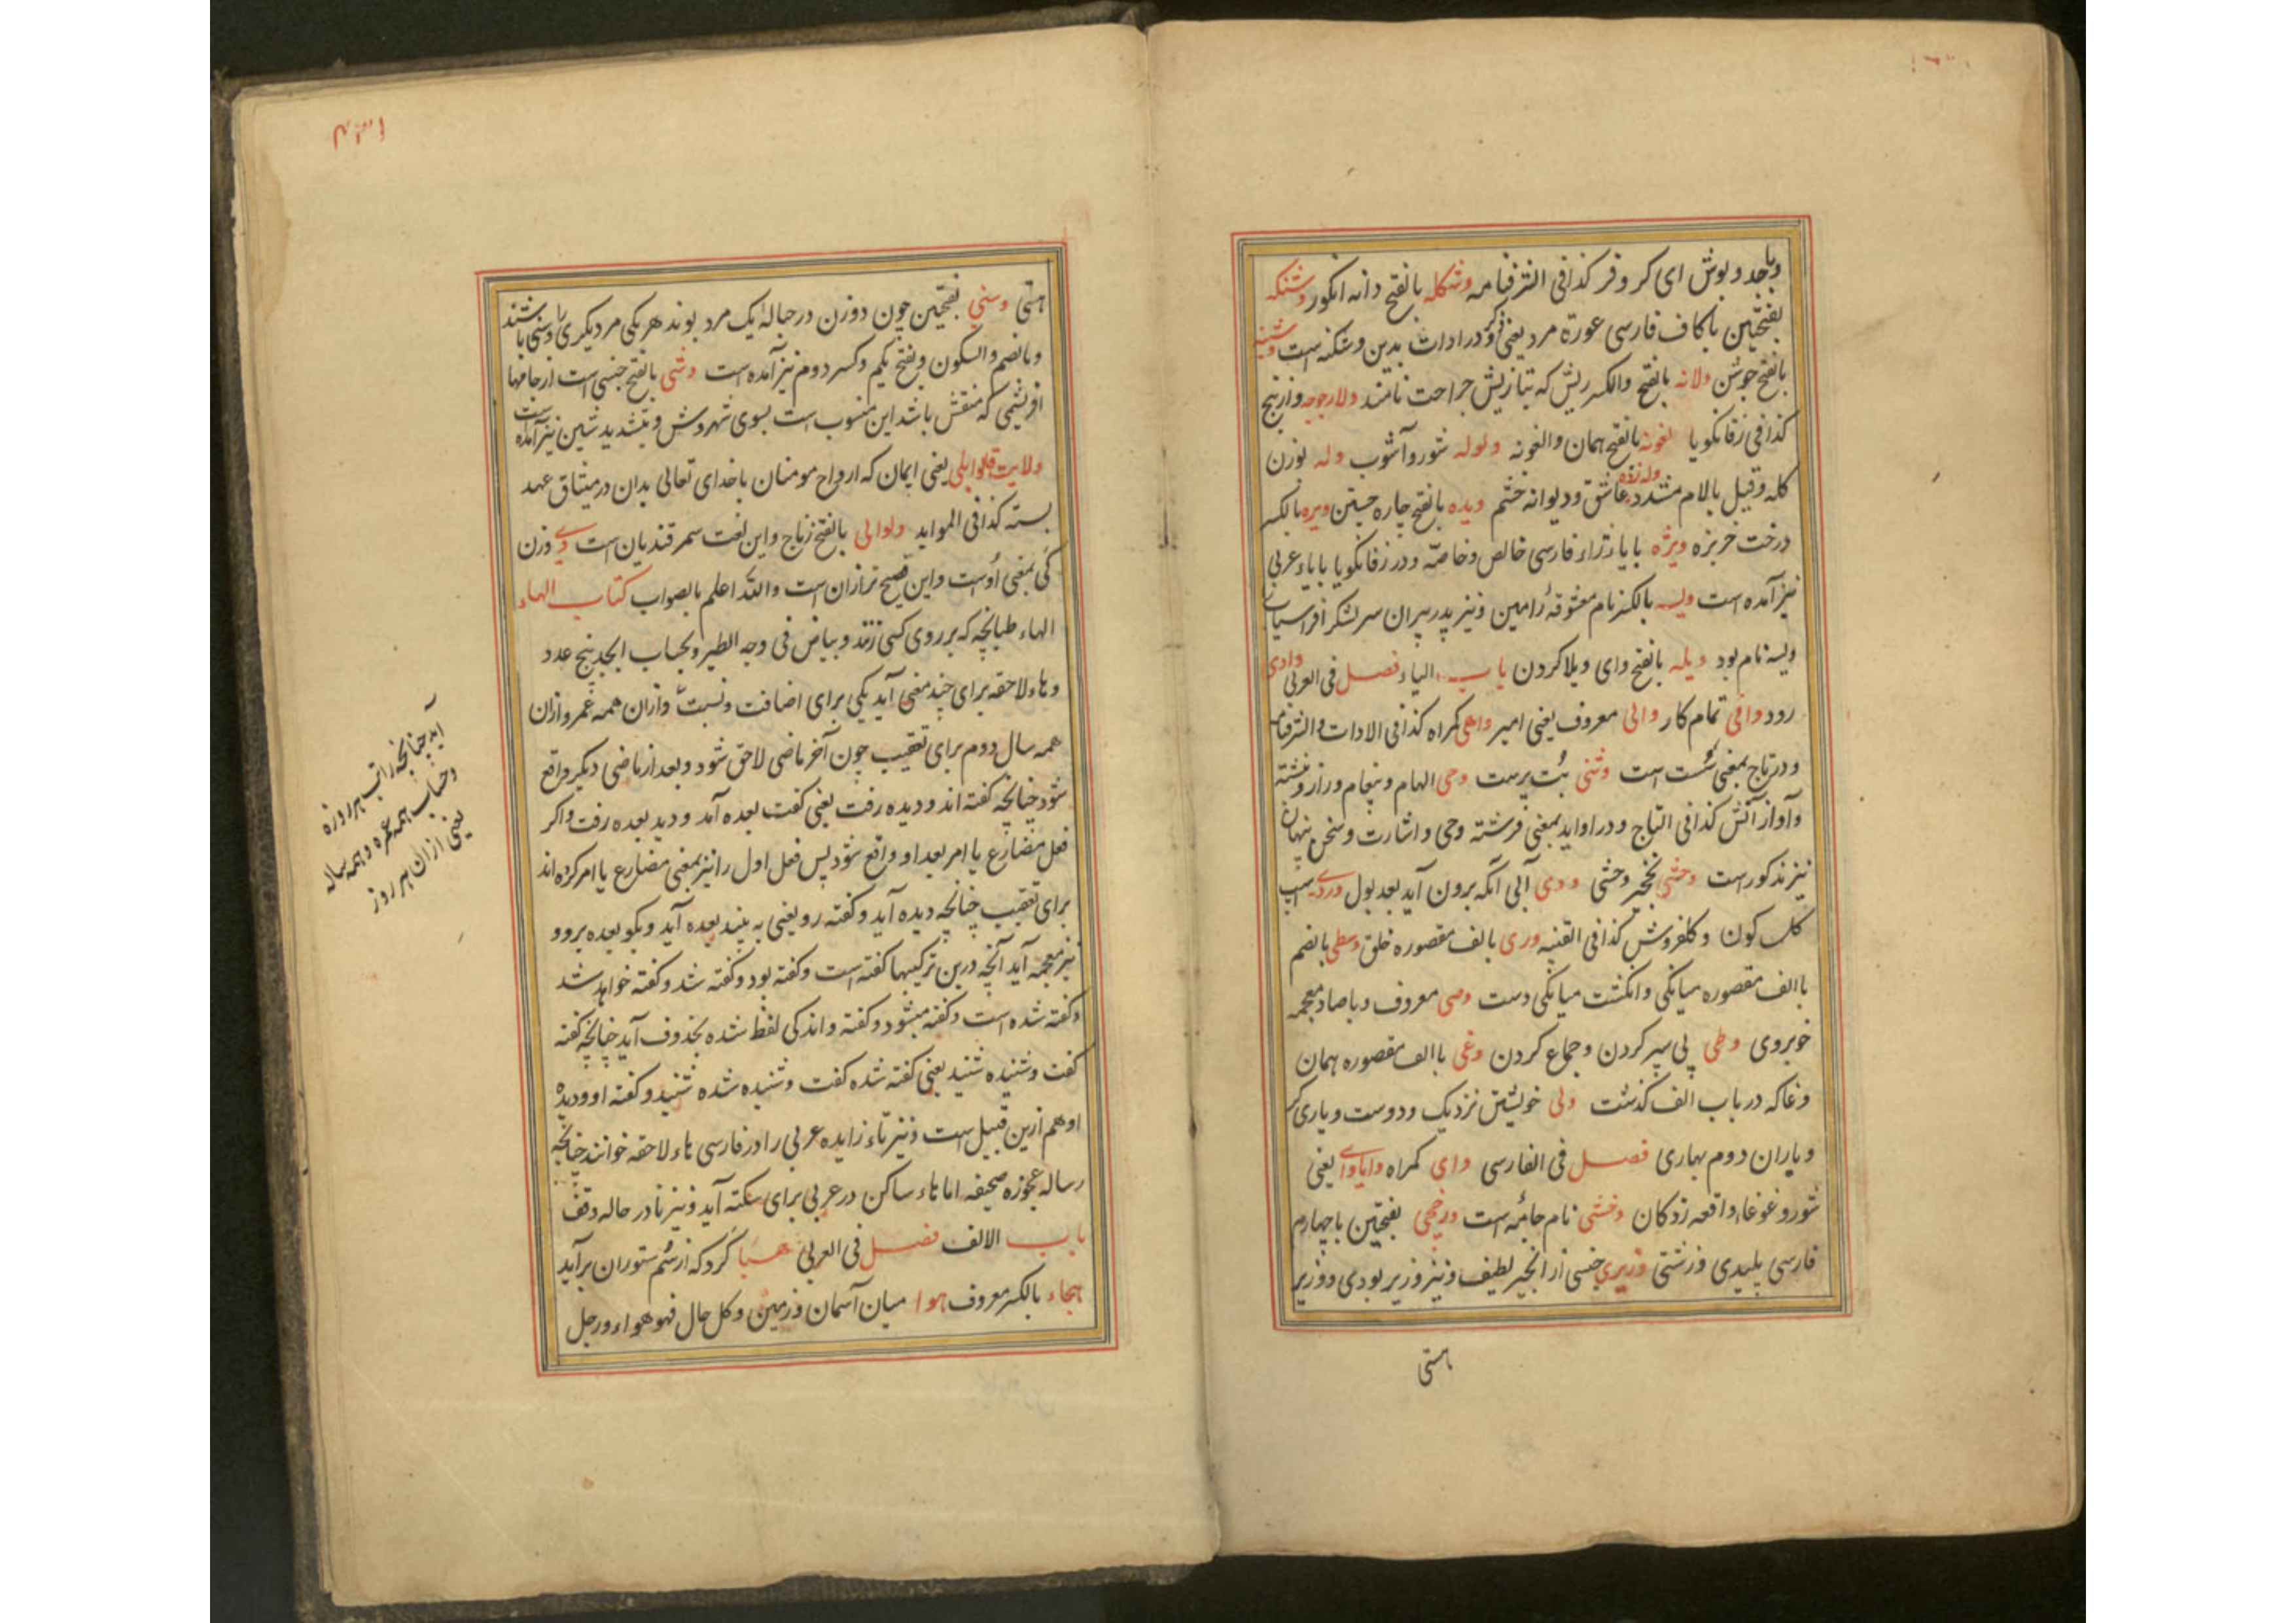 وباجد و بوش ای کر و فر کذا فی الشرفنامه وشکله بالفتح دانه انگور وشنکه
بفتحتین با کاف فارسی عورة مرد یعنی ذکر و در ادات بدین وشکنه است وشینه
بالفتح جوشن ولانه بالفتح والکسر ریش که بتازیش جراحت نامند ولارجوجه وازنج
کذا فی زفانکویا لغونه بالفتح همان والغونه ولوله شور و آشوب وله بوزن
کله وقیل بالام مشدد عاشق و دیوانه خشم ویده بالفتح چاره جستن ویره بالکسر
درخت خربزه ویژه با یا وزاء فارسی خالص و خاصّه و در زفانکویا با یاء عربی
نیز آمده است ویسه بالکسر نام معشوقهٔ رامین و نیز پدر پیران سر لشکر افراسیاب
ویسه نام بود ویله بالفتح وای ویلا کردن باب الیاء فصل فی العربی وادی
رود وافی تمام کار والی معروف یعنی امیر واهی کمراه کذا فی الادات والشرفنامه
و در تاج بمعنی سُست است وثنی بُت پرست وحی الهام و پیغام و راز و نبشته
و آواز آتش کذا فی التاج و در اواید بمعنی فرشته وحی و اشارت و سخن پنهان
نیز مذکور است وحشی نخچیر وحشی ودی آبی آنکه برون آید بعد بول وردی اسپ
کل کون و کلفروش کذا فی القنیه وری بالف مقصوره خلق وسطی بالضم
با الف مقصوره میانکی و انکشت میانکی دست وصی معروف و با صاد معجمه
خوبروی وطی پی سپر کردن و جماع کردن وغی با الف مقصوره همان
وغا که در باب الف کذشت ولی خویشتن نزدیک و دوست و یاری کر
و باران دوم بهاری فصل فی الفارسی وای کمراه وایاوای یعنی
شور و غوغاء واقعه زدکان وخشی نام جامه است ورخجی بفتحتین با چهارم
فارسی پلیدی و زشتی وزیری جنسی از انجیر لطیف و نیز وزیر بودی و وزیر
هستی
هستی وسنی بفتحتین چون دو زن در حبالهٔ یک مرد بوند هر یکی مر دیکری را وسنی باشند
و بالضم والسکون و بفتح یکم و کسر دوم نیز آمده است وشی بالفتح جنسی است از جامها
افریشمی که منقش باشد این منسوب است بسوی شهر وش و بتشدید شین نیز آمده است
ولایت قالوا بلی یعنی ایمان که ارواح مومنان با خدای تعالی بدان در میثاق عهد
بسته کذا فی المواید ولوالی بالفتح زجاج و این لغت سمرقندیان است وی وزن
کَی بمعنی اوست و این فصیح تر ازان است والله اعلم بالصواب کتاب الهاء
الهاء طپانچه که بر روی کسی زنند و بیاض فی وجه الطیر و بحساب ابجد پنج عدد
و هاء لاحقه برای چند معنی آید یکی برای اضافت و نسبت و ازان همه عمر و ازان
همه سال دوم برای تعقیب چون آخر ماضی لاحق شود و بعد از ماضی دیکر واقع
شود چنانچه کفته اند و دیده رفت یعنی کفت بعده آمد و دید بعده رفت و اکر
فعل مضارع یا امر بعد او واقع شود پس فعل اول را نیز بمعنی مضارع یا امر کرده اند
برای تعقیب چنانچه دیده آید و کفته رو یعنی به بیند بعده آید و بکو بعده برو و
نیز معجمه آید آنچه درین ترکیبها کفته است و کفته بود و کفته شد و کفته خواهد شد
و کفته شده است و کفته میشود و کفته و اندکی لفظ شده بحذوف آید چنانچه کفته
کفت و شنیده شنید یعنی کفته شده کفت و شنیده شده شنید و کفته او و دیدهٔ
او هم ازین قبیل است و نیز تاء زایده عربی را در فارسی هاء لاحقه خوانند چنانچه
رساله عجوزه صحیفه اما هاء ساکن در عربی برای سکته آید و نیز تا در حاله وقف
باب الالف فصل فی العربی هبا کرد که از سُم ستوران برآید
هجاء بالکسر معروف هوا میان آسمان و زمین و کل خال فهو هواء و رجل
آید چنانچه راتب هر روزه
و حساب همه عمره و همه ساله
یعنی ازان هر روز